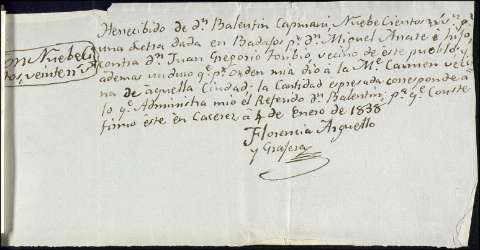 He recibido de dn Balentin Capurari, Nuebe Cientos rs vn pr
una Letra dada en Badajos pr dn Miguel Anate é hijo,
contra dn Juan Gregorio Toribio, vecino de este pueblo, y
ademas un duro qe pr orden mia dió a la Ma Carmen veci
na de aquella Ciudad; la Cantidad espresada corresponde a
lo qe Administra mio el Referido dn Balentin, pa qe Conste
firmo éste en Caceres á 4 de Enero de 1838
Florencia Arguello
y Grafera
son Nuebeci
tos, veinte rs vn